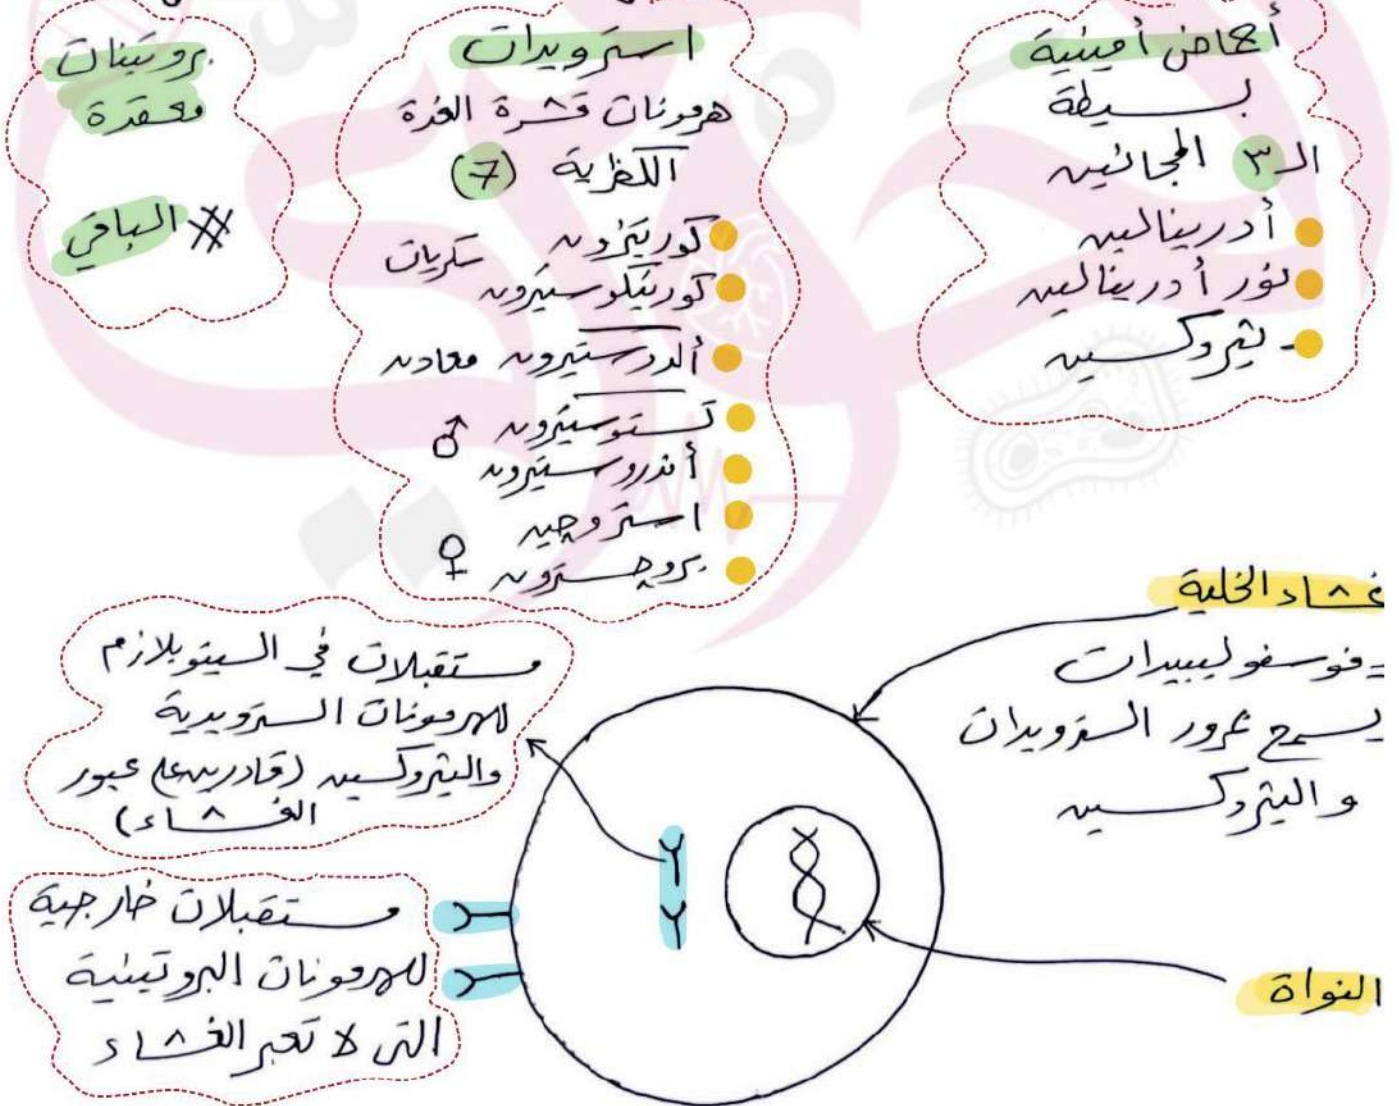 أحماض أمينية
بسيطة
الـ ٣ المجانين
أدرينالين
نور أدرينالين
ثيروكسين
استرويدات
هرمونات قشرة الغدة
الكظرية (7)
كورتيزون
سكريات
كورتيكوستيرون
ألدوستيرون معادن
تستوستيرون
♂
أندروستيرون
استروجين
♀
بروجسترون
بروتينات
معقدة
# الباقي
غشاء الخلية
فوسفوليبيدات
يسمح بمرور السترويدات
والثيروكسين
النواة
مستقبلات في السيتوبلازم
للهرمونات السترويدية
والثيروكسين (قادرين على عبور
الغشاء)
مستقبلات خارجية
للهرمونات البروتينية
التى لا تعبر الغشاء